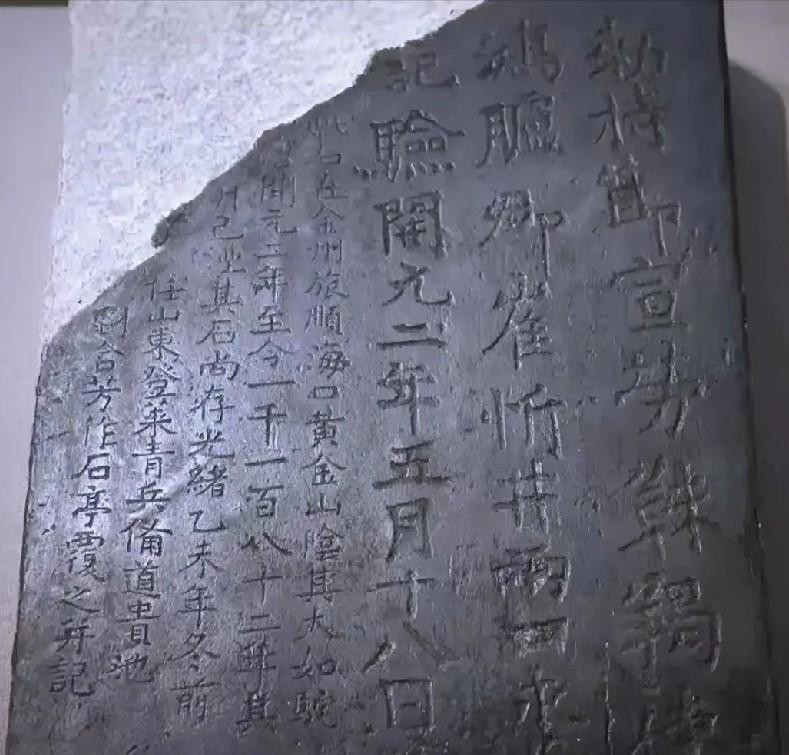 勅持節宣勞靺羯使
鴻臚卿崔忻井兩口永
記驗開元二年五月十八日
此石在金州旅順海口黃金山陰其大如駝
唐開元二年至今一千一百八十二年其
井已堙其石尚存光緒乙未年冬前
任山東登萊青兵備道貴池
劉含芳作石亭覆之并記